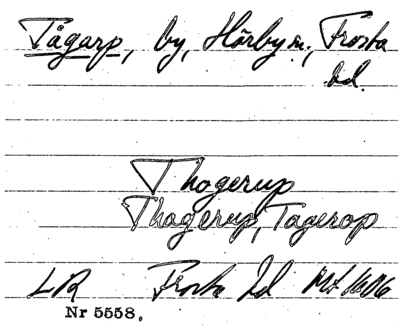 Tågarp, by, Hörby sn., Frosta
hd.
Thogerup
Thagerup, Tagerop
LR Frosta hd
Nr 5558.